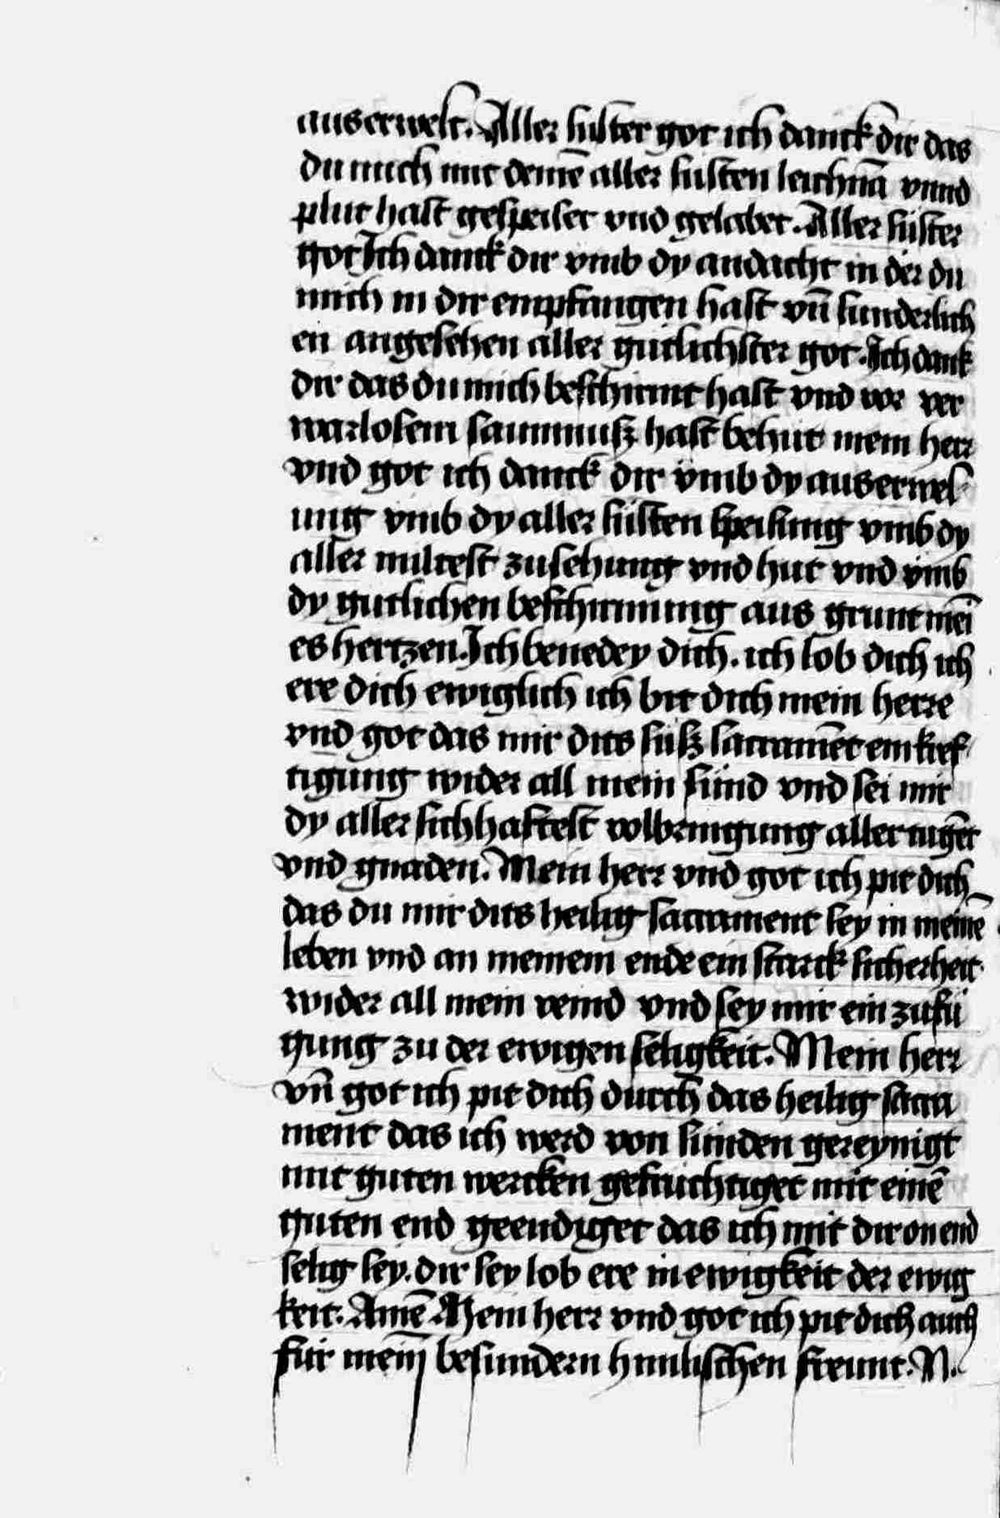 auserwelt. Aller suster got ich danck dir das
du mich mit deinē aller susten leichnā vnnd
plut hast gespeiset vnd gelabet. Aller suster
got Ich danck dir vmb dy andacht in der du
mich in dir empfangen hast vn̄ sunderlich
en angesehen aller gutlichster got. Ich dank
dir das du mich beschirmt hast vnd vor ver
warlosem saumnusz hast behut mein herr
vnd got ich danck dir vmb dy auserwel
ung vmb dy aller süsten speisung vmb dy
aller miltest zusehung vnd hut vnd vmb
dy gutlichen beschirmung aus grunt mei
es hertzen. Ich benedey dich. ich lob dich ich
ere dich ewiglich ich bit dich mein herre
vnd got das mir dits süsz sacramēt ein kref
tigung wider all mein sünd vnd sei mir
dy aller sichhaftest volbringung aller tugēt
vnd gnaden. Mein herr vnd got ich pit dich
das du mir dits heilig sacrament sey in meinē
leben vnd an meinem ende ein starck sicherheit
wider all mein veind vnd sey mir ein zufu
gung zu der ewigen seligkeit. Mein herr
vn̄ got ich pit dich durch das heilig sacra
ment das ich werd von sunden gereynigt
mit guten wercken gefruchtiget mit einē
guten end geendiget das ich mit dir on end
selig sey. dir sey lob ere in ewigkeit der ewig
keit. Amē Mein herr vnd got ich pit dich auch
für mein besundern himlischen freunt. N.